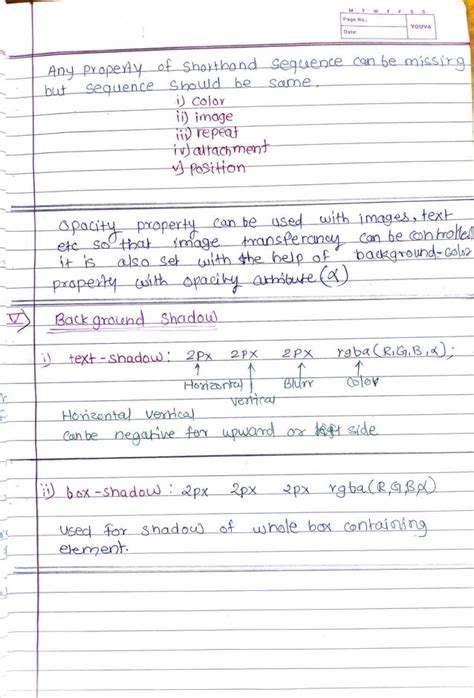 M T W T F S S
Page No.:
Date:
YOUVA
Any property of shorthand sequence can be missing
but sequence should be same.
i) color
ii) image
iii) repeat
iv) attachment
v) position
opacity property can be used with images, text
etc so that image transperancy can be controlled
it is also set with the help of background-color
property with opacity attribute (α)
V) Background Shadow
i) text-shadow: 2px 2px 2px rgba(R,G,B,α);
Horizontal Blurr Color
vertical
Horizontal vertical
can be negative for upward or left side
ii) box-shadow: 2px 2px 2px rgba(R,G,B,α)
used for shadow of whole box containing
element.